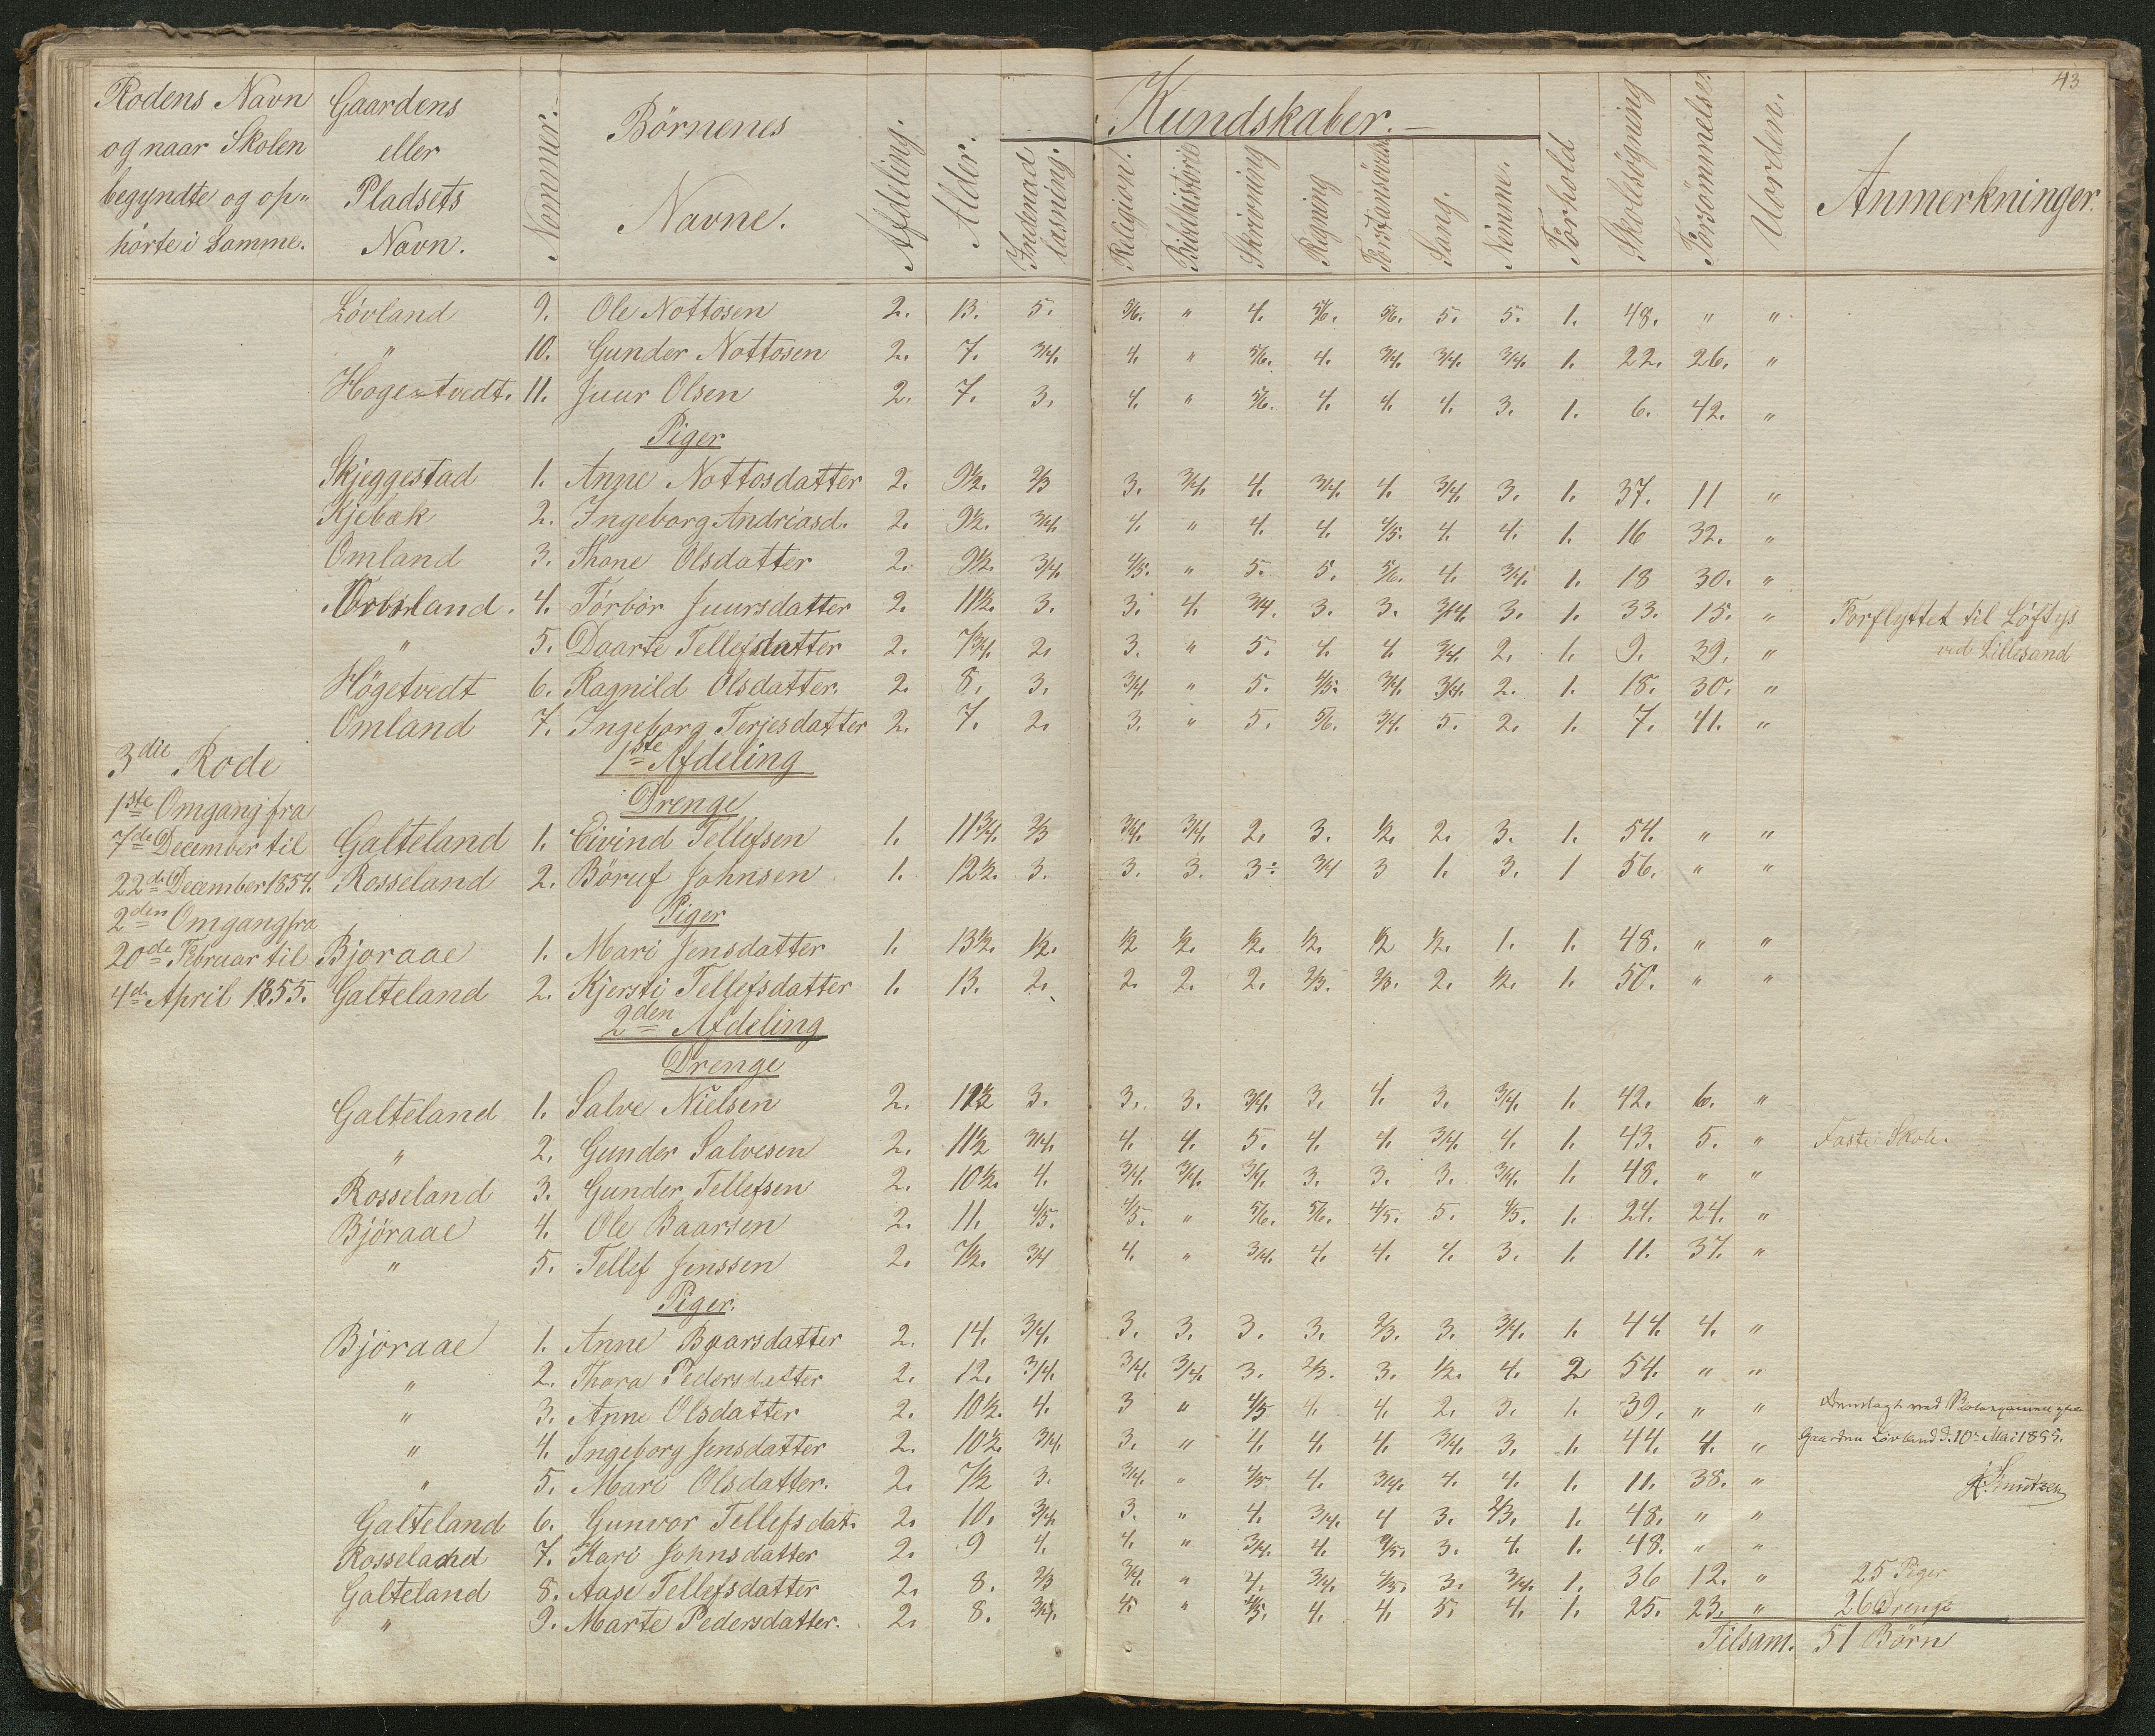 43
Rodens Navn og naar Skolen begyndte og op„ hørte i Samme. Gaardens eller Pladsets Navn. Nommer. Børnenes Navne. Afdeling. Alder. Kundskaber. Indenad læsning. Religion. Bibelhistorie Skrivning Regning Forstansøvelse Sang. Nemme. Forhold Skolesøgning Forsømmelse. Uorden. Anmerkninger.
Løvland 9. Ole Nottosen 2. 13. 5. 5/6. " 4. 5/6. 5/6. 5. 5. 1. 48. " "
" 10. Gunder Nottosen 2. 7. 3/4. 4. " 5/6. 4. 3/4. 3/4. 3/4. 1. 22. 26. "
Hogetvedt. 11. Juur Olsen 2. 7. 3. 4. " 5/6. 4. 4. 4. 3. 1. 6. 42. "
Piger
Skjeggestad 1. Anne Nottosdatter 2. 9½. 2/3 3. 3/4. 4. 3/4. 4. 3/4. 3. 1. 37. 11 "
Kjebæk 2. Ingeborg Andriasd. 2. 9½. 3/4. 4. " 4. 4. 4/5. 4. 4. 1. 16 32. "
Omland 3. Thone Olsdatter 2. 9½. 3/4. 4/5. " 5. 5. 5/6. 4. 3/4. 1. 18 30. "
4. Torbør Juursdatter 2. 11½. 3. 3. 4. 3/4. 3. 3. 3/4. 3. 1. 33. 15. " Forflyttet til Løftys
" 5. Daarte Tellefsdatter 2. 7¾. 2. 3. " 5. 4. 4. 3/4. 2. 1. 9. 39. " ved Lillesand
Høgetvedt 6. Ragnild Olsdatter. 2. 8. 3. 3/4 " 5. 4/5. 3/4. 3/4. 2. 1. 18. 30. "
Omland 7. Ingeborg Terjesdatter 2. 7. 2. 3. " 5. 5/6. 3/4. 5. 2. 1. 7. 41. "
3die Rode 1ste Afdeling
1ste Omgang fra Drenge
7de December til Galteland 1. Eivind Tellefsen 1. 11¾. 2/3 3/4. 3/4. 2. 3. 1/2. 2. 3. 1. 54. " "
22de December 1854. Rosseland 2. Børuf Johnsen 1. 12½. 3. 3. 3. 3. 3/4 3 1. 3. 1 56. " "
2den Omgang fra Piger
20de Februar til Bjoraae 1. Mari Jensdatter 1. 13½. 1/2. 1/2 1/2. 1/2. 1/2. 1/2 1/2. 1. 1. 48. " "
4de April 1855. Galteland 2. Kjersti Tellefsdatter 1. 13. 2. 2. 2. 2. 2/3. 2/3. 2. 1/2. 1. 50. " "
2den Afdeling
Drenge
Galteland 1. Salve Nielsen 2. 3. 3. 3. 3/4. 3. 4. 3. 3/4. 1. 42. 6. "
" 2. Gunder Salvesen 2. 11½ 3/4. 4. 4. 5. 4. 4. 3/4. 4. 1. 43. 5. " Faste Skole.
Rosseland 3. Gunder Tellefsen 2. 10½. 4. 3/4. 3/4. 3/4. 3. 3. 3. 3/4. 1. 48. " "
Björaae 4. Ole Baarsen 2. 11. 4/5. 4/5. " 5/6. 5/6. 4/5. 5. 4/5. 1. 24. 24. "
" 5. Tellef Jenssen 2. 7½. 3/4 4. " 3/4. 4. 4. 4. 3. 1. 11. 37. "
Piger.
Bjoraae 1. Anne Baarsdatter 2. 14. 3/4. 3. 3. 3. 3. 2/3. 3. 3/4. 1. 44. 4. "
" 2. Thora Pedersdatter 2. 12. 3/4. 3/4. 3/4. 3. 2/3. 3. 1/2. 4. 2 54. " "
" 3. Anne Olsdatter 2. 10½. 4. 3 " 4/5 4. 4. 2. 3. 1. 39. " "
" 4. Ingeborg Jensdatter 2. 10½. 3/4. 3. " 4. 4. 4. 3/4. 3. 1. 44. 4. " Gaarden Løvland d. 10de Mai 1855.
" 5. Mari Olsdatter. 2. 7½ 3. 3/4. " 4/5 4. 3/4. 4. 4. 1. 11. 38. " Knutzen
Galteland 6. Gunvor Tellefsdat. 2. 10. 3/4. 3. " 4. 3/4. 4 3. 2/3. 1. 48. " "
Rosseland 7. Kari Johnsdatter 2. 9 4. 4. " 3/4. 4. 3. 4. 1. 48. " "
Galteland 8. Aase Tellefsdatter 2. 8. 2/3 3/4. " 4. 3/4. 4/5. 3. 3/4. 1. 36 12. " 25 Piger
" 9. Marte Pedersdatter. 2. 8. 3/4. 4. " 4/5. 4. 4. 5. 4. 1. 25. 23. " 26 Drenge
Tilsam. 51 Börn